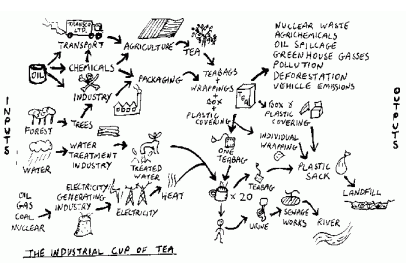 TRANSCO
LTD.
TRANSPORT
AGRICULTURE
TEA
NUCLEAR WASTE
AGRICHEMICALS
OIL SPILLAGE
GREENHOUSE GASSES
POLLUTION
DEFORESTATION
VEHICLE EMISSIONS
OIL
CHEMICALS
INDUSTRY
PACKAGING
TEABAGS
+
WRAPPINGS
+
BOX
+
PLASTIC
COVERING
INPUTS
OUTPUTS
FOREST
TREES
BOX &
PLASTIC
COVERING
INDIVIDUAL
WRAPPING
ONE
TEABAG
WATER
WATER
TREATMENT
INDUSTRY
TREATED
WATER
PLASTIC
SACK
LANDFILL
TEABAG
OIL
GAS
COAL
NUCLEAR
ELECTRICITY
GENERATING
INDUSTRY
ELECTRICITY
HEAT
x 20
URINE
SEWAGE
WORKS
RIVER
THE INDUSTRIAL CUP OF TEA